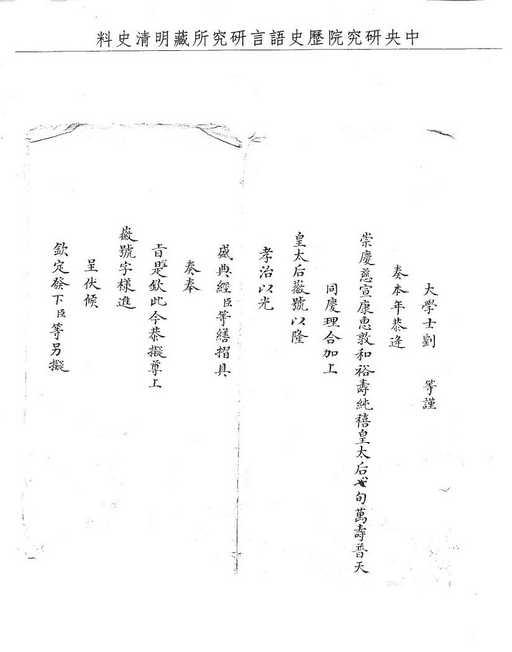 中央研究院歷史語言研究所藏明清史料
大學士劉 等謹
奏本年恭逢
崇慶慈宣康惠敦和裕壽純禧皇太后七旬萬壽普天
同慶理合加上
皇太后徽號以隆
孝治以光
盛典經臣等繕摺具
奏奉
旨是欽此今恭擬尊上
徽號字樣進
呈伏候
欽定發下臣等另擬